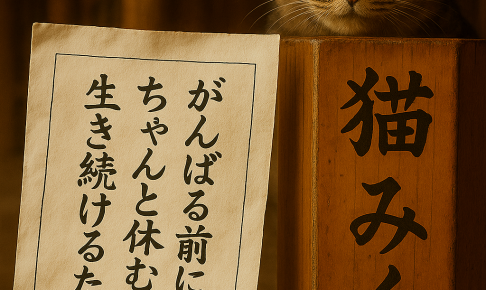 猫み
がんばる前に
ちゃんと休む
生き続けるた